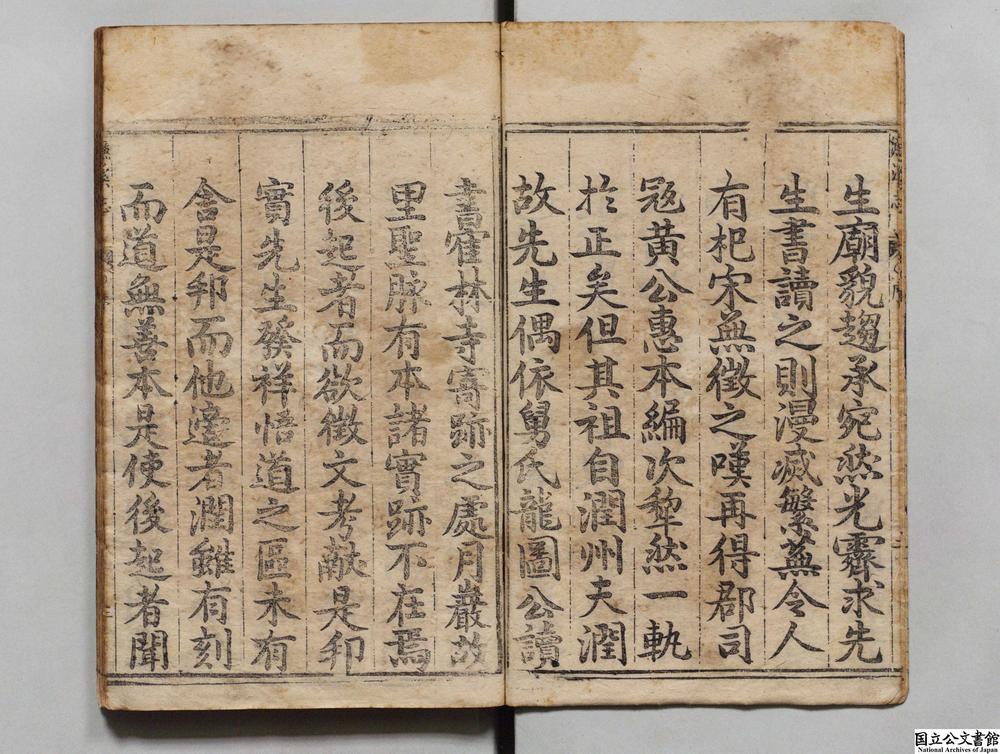 生廟貌趨承宛然光霽求先
生書讀之則漫滅繁蕪令人
有杞宋無徵之嘆再得郡司
冦黄公惠本編次犂然一軌
扵正矣但其祖自潤州夫潤
故先生偶依舅氏龍圖公讀
書霍林寺寄跡之處月巖故
里聖脉有本諸實跡不在焉
後起者而欲徵文考獻是邦
實先生發祥悟道之區未有
舎是邦而他邊者潤雖有刻
而道無善本是使後起者聞
国立公文書館
National Archives of Japan